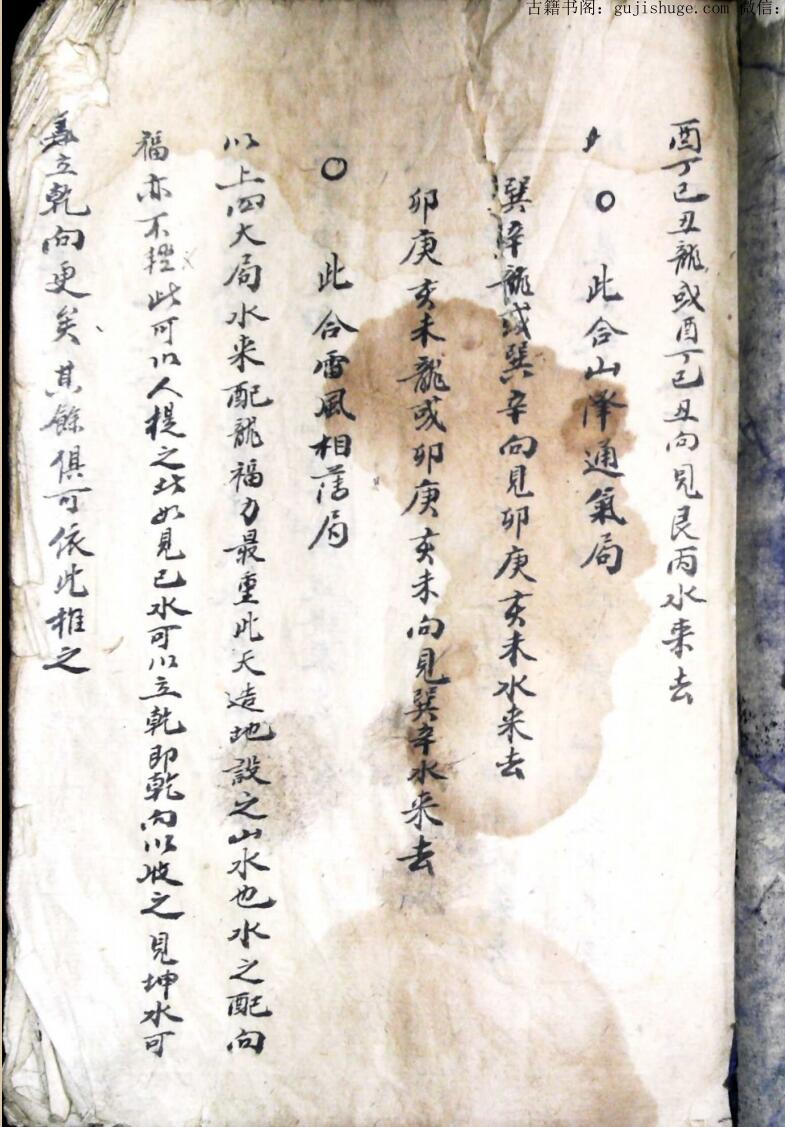 古籍书阁：gujishuge.com 微信：
酉丁巳丑龍或酉丁巳丑向見艮丙水来去
○ 此合山澤通氣局
巽辛龍或巽辛向見卯庚亥未水来去
卯庚亥未龍或卯庚亥未向見巽辛水来去
○ 此合雷風相薄局
以上四大局水来配龍福力最重此天造地設之山水也水之配向
福亦不輕此可以人提之此如見巳水可以立乾即乾向以收之見坤水可
立乾向更矣其餘俱可依此推之